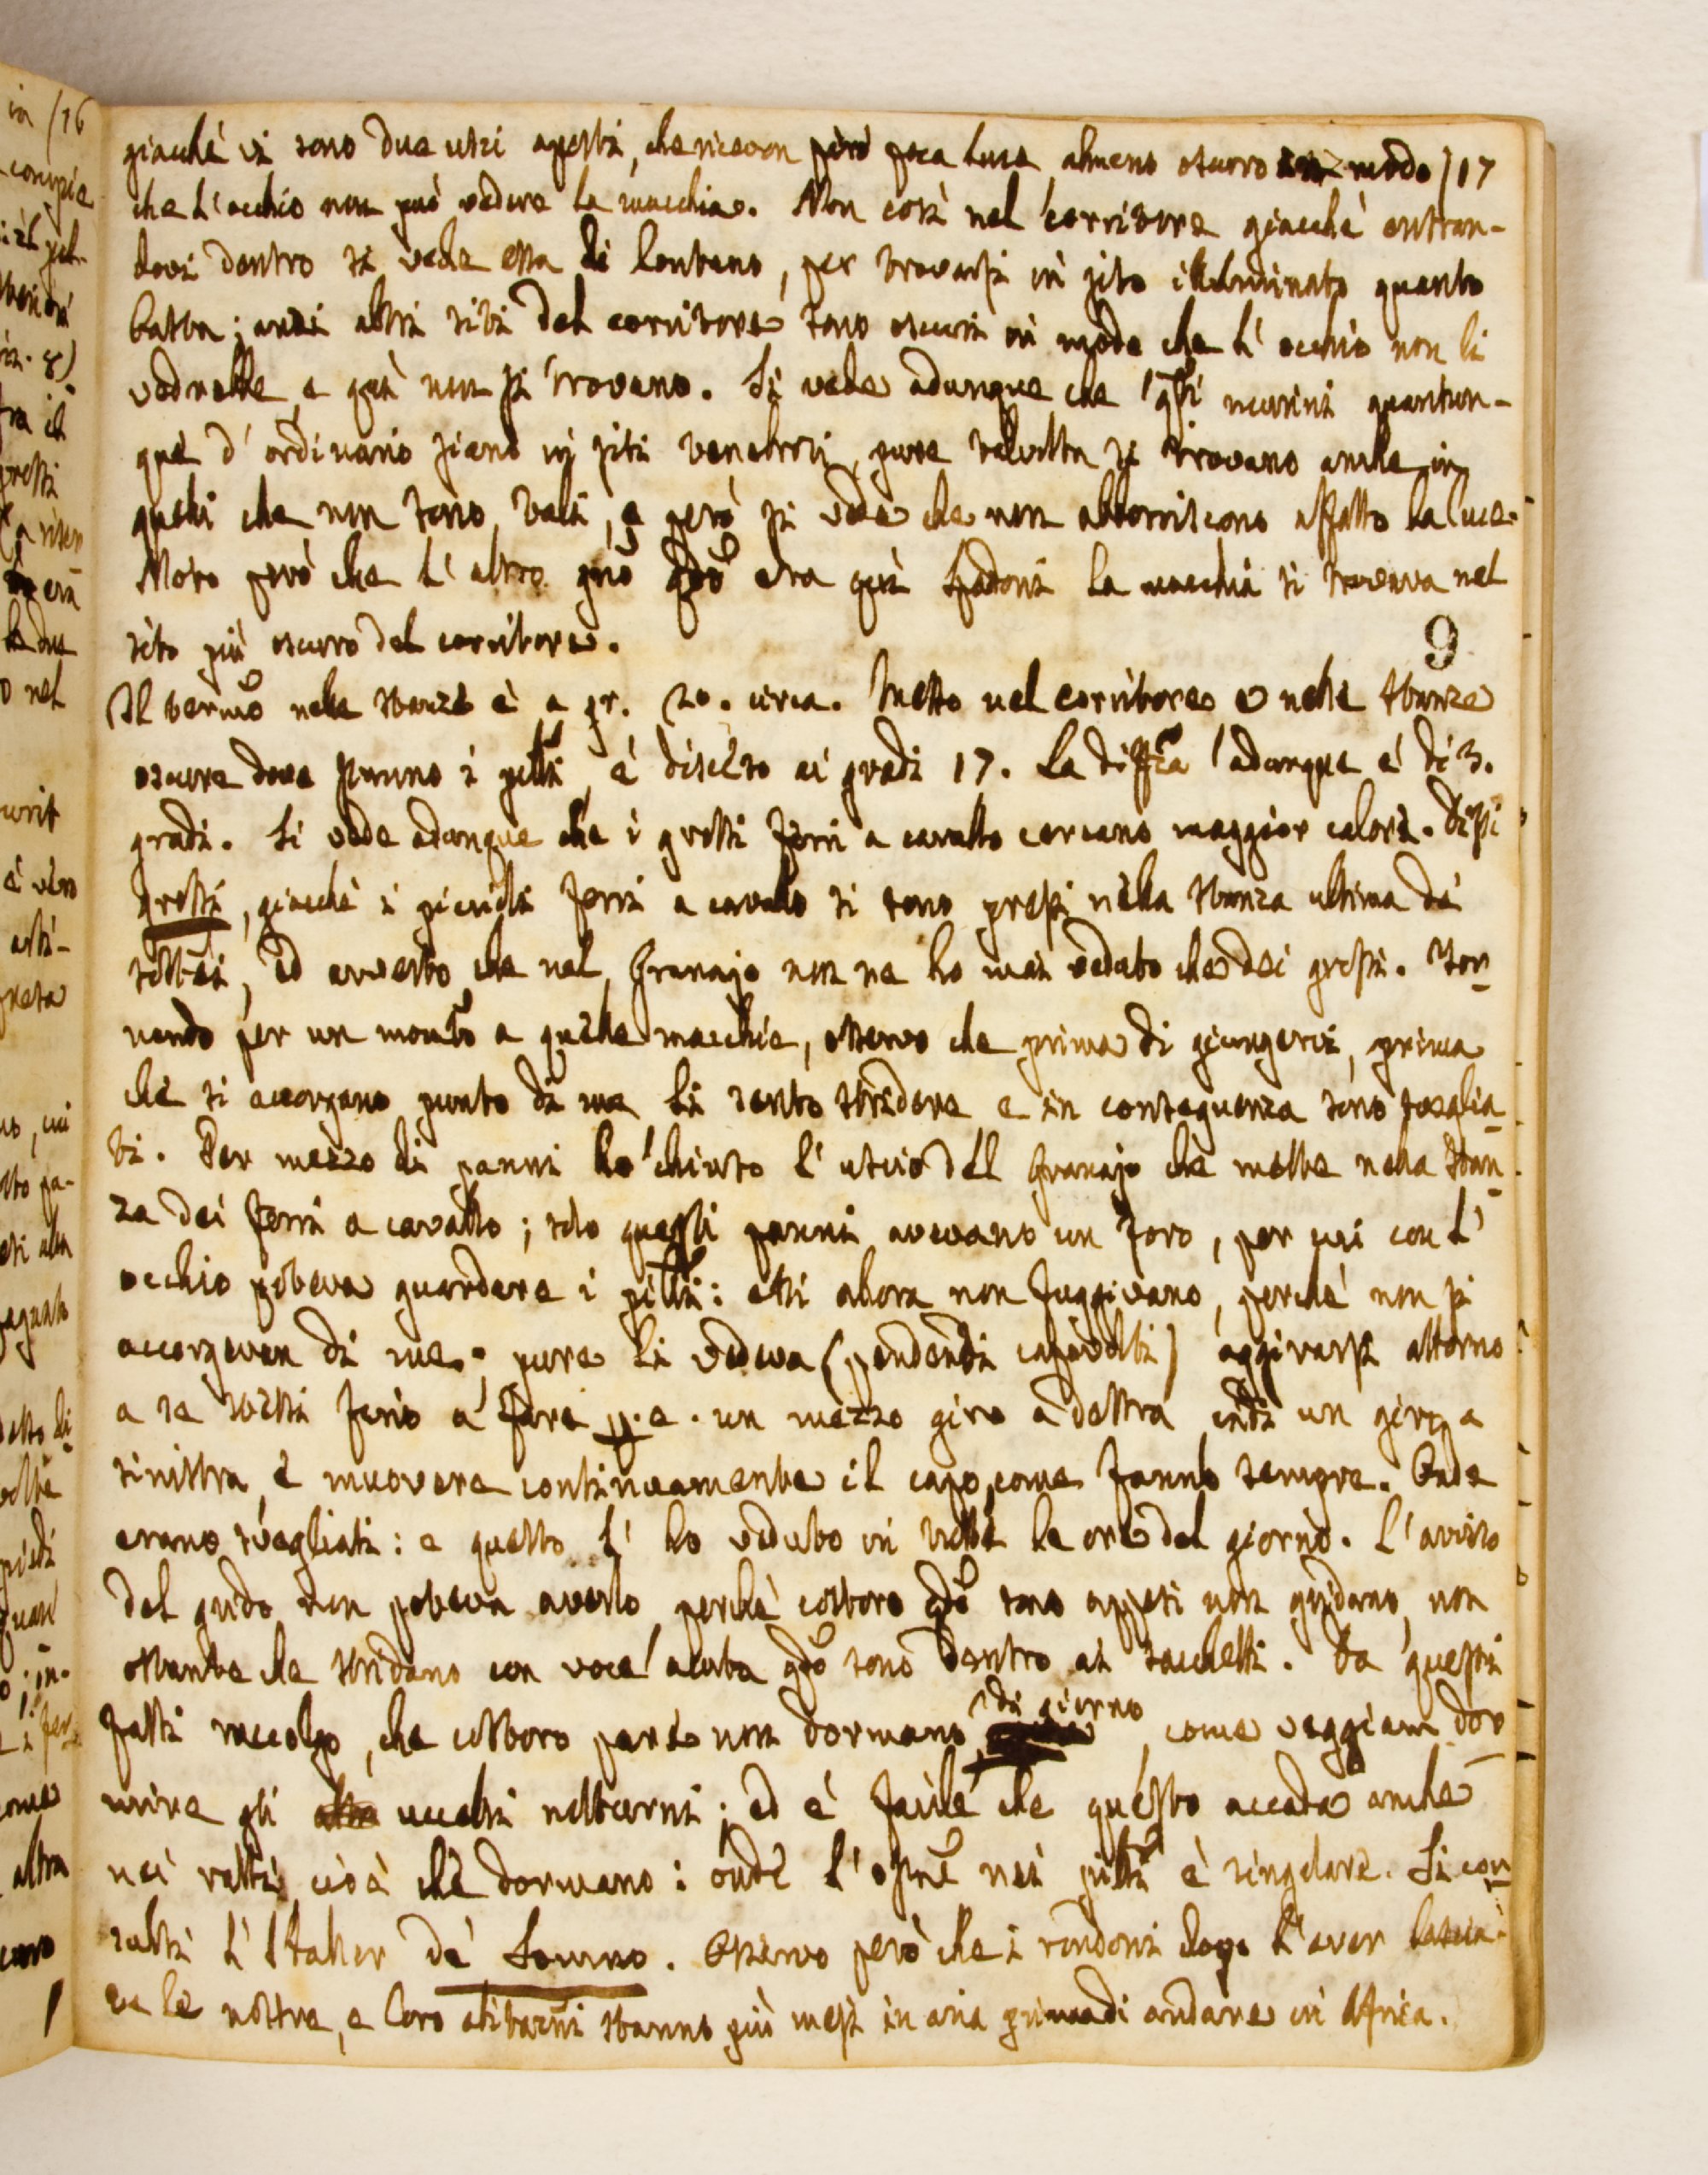 giacchè vi sono due usci aperti, che ricevon però poca luce almeno oscurro in modo /17
che l'occhio non può vedere la macchia. Non così nel corritore giacchè entran-
dovi dentro si vede essa di lontano, per trovarsi in sito illuminato quanto
basta; anzi altri siti del corritore sono oscuri in modo che l'occhio non li
vedrebbe, e quì non si trovano. Si vede adunque che qsti animali quantun-
que d'ordinario siano in siti tenebrosi, pure talvolta si trovano anche in
quelli che non sono tali, e però si vede che non abborriscono affatto la luce.
Noto però che l'altro gno qdo era quì Spadoni la macchia si trovava nel
sito più oscurro del corritore.
9
Il termo nelle stanze è a gr. 20. circa. Messo nel corritore o nelle stanze
oscure dove stanno i pilli è disceso ai gradi 17. La diffza adunque è di 3.
gradi. Si vede adunque che i grossi ferri a cavallo cercano maggior calore. Dissi
grossi, giacchè i piccioli ferri a cavallo si sono presi nella stanza ultima de'
sotterei, ed avverto che nel Granajo non ne ho mai veduto che dei grossi. Tor
nando per un momto a quelle macchie, osservo che prima di giungervi, prima
che si accorgano punto di me li sento stridere e in conseguenza sono sveglia
ti. Per mezzo di panni ho chiuso l'uscio del Granajo che mette nella stan
za dei ferri a cavallo; solo questi panni avevano un foro, per cui con l'
occhio poteva guardare i pilli: essi allora non fuggivano, perchè non si
accorgevan di me; pure li vedeva (pendenti capovolti) aggirarsi attorno
a se stessi fino a fare p.e. un mezzo giro a destra indi un giro a
sinistra, e muovere continuamente il capo, come fanno sempre. Onde
erano svegliati: e questo l'ho veduto in tutte le ore del giorno. L'avviso
del grido non poteva averlo, perchè costoro qdo sono appesi non gridano, non
ostante che stridano con voce acuta qdo sono dentro ai sacchetti. Da questi
fatti raccolgo, che costoro pare non dormano di giorno come veggiam dor
mire gli altri uccelli notturni; ed è facile che questo accada anche
nei ratti, cioè che dormano: onde l'osne nei pilli è singolare. Si con
sulti l'Haller de Somno. Osservo però che i rondoni dopo l'aver lascia-
te le nostre, e loro abitazni stanno più mesi in aria prima di andare in Africa.